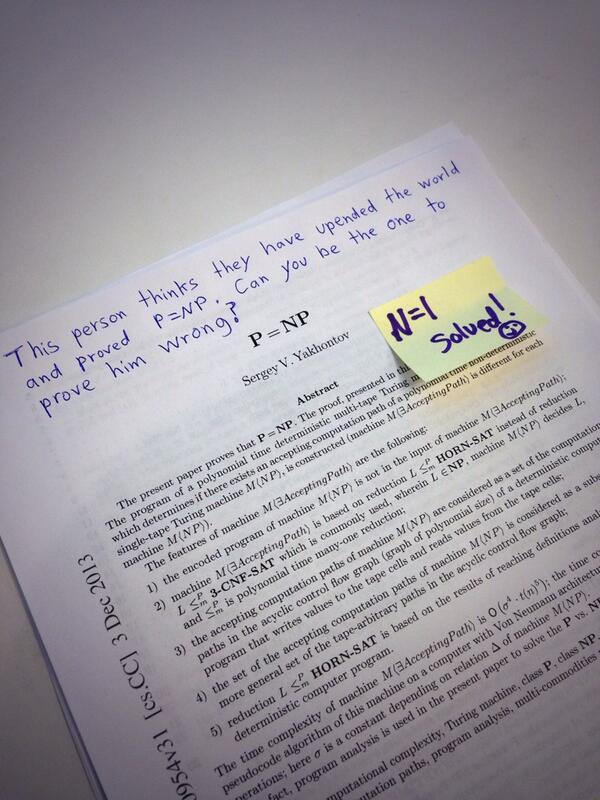 This person thinks they have upended the world
and proved P=NP. Can you be the one to
prove him wrong?
N=1
Solved!
P = NP
Sergey V. Yakhontov
Abstract
The present paper proves that P=NP. The proof, presented in the
The program of a polynomial time deterministic multi-tape Turing
which determines if there exists an accepting computation path of a polynomial time non-deterministic
single-tape Turing machine M(NP), is constructed (machine M(∃AcceptingPath) is different for each
machine M(NP)).
The features of machine M(∃AcceptingPath) are the following:
1) the encoded program of machine M(NP) is not in the input of machine M(∃AcceptingPath);
2) machine M(∃AcceptingPath) is based on reduction L ≤ᴾₘ HORN-SAT instead of reduction
L ≤ᴾₘ 3-CNF-SAT which is commonly used, wherein L ∈NP, machine M(NP) decides L,
and ≤ᴾₘ is polynomial time many-one reduction;
3) the accepting computation paths of machine M(NP) are considered as a set of the computation
paths in the acyclic control flow graph (graph of polynomial size) of a deterministic
program that writes values to the tape cells and reads values from the tape cells;
4) the set of the accepting computation paths of machine M(NP) is considered as a
more general set of the tape-arbitrary paths in the acyclic control flow graph;
5) reduction L ≤ᴾₘ HORN-SAT is based on the results of reaching definitions
deterministic computer program.
The time complexity of machine M(∃AcceptingPath) is O(σ⁴ · t(n)⁵); the time
pseudocode algorithm of this machine on a computer with Von Neumann
operations; here σ is a constant depending on relation Δ of machine M(NP).
fact, program analysis is used in the present paper to solve the P vs.
computational complexity, Turing machine, class P, class NP,
computation paths, program analysis, multi-commodities
0954v31 [cs.CC] 3 Dec 2013